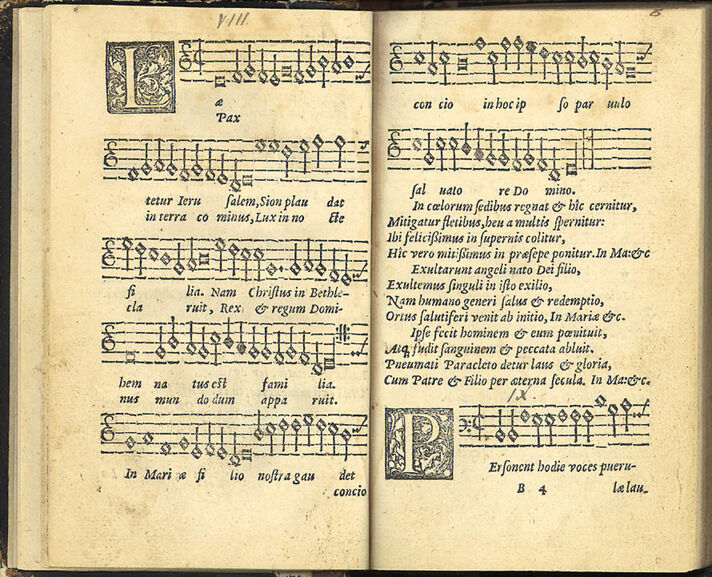 VIII
L
æ
Pax
tetur Ieru ſalem, Sion plau dat
in terra co minus, Lux in no cte
fi lia. Nam Chriſtus in Bethle-
cla ruit, Rex & regum Domi-
hem na tus eſt fami lia.
nus mun do dum appa ruit.
In Mari æ fi lio noſtra gau det
concio
8
con cio in hoc ip ſo par uulo
ſal uato re Do mino.
In cœlorum ſedibus regnat & hîc cernitur,
Mitigatur fletibus, heu a multis ſpernitur:
Ibi feliciſſimus in ſupernis colitur,
Hîc vero mitiſſimus in præſepe ponitur. In Ma:&c
Exultarunt angeli nato Dei filio,
Exultemus ſinguli in iſto exilio,
Nam humano generi ſalus & redemptio,
Ortus ſalutiferi venit ab initio, In Mariæ &c.
Ipſe fecit hominem & eum pœnituit,
Atq; fudit ſanguinem & peccata abluit.
Pneumati Paracleto detur laus & gloria,
Cum Patre & Filio per æterna ſecula. In Ma:&c.
IX
P
Erſonent hodie voces pueru-
B 4 læ lau-